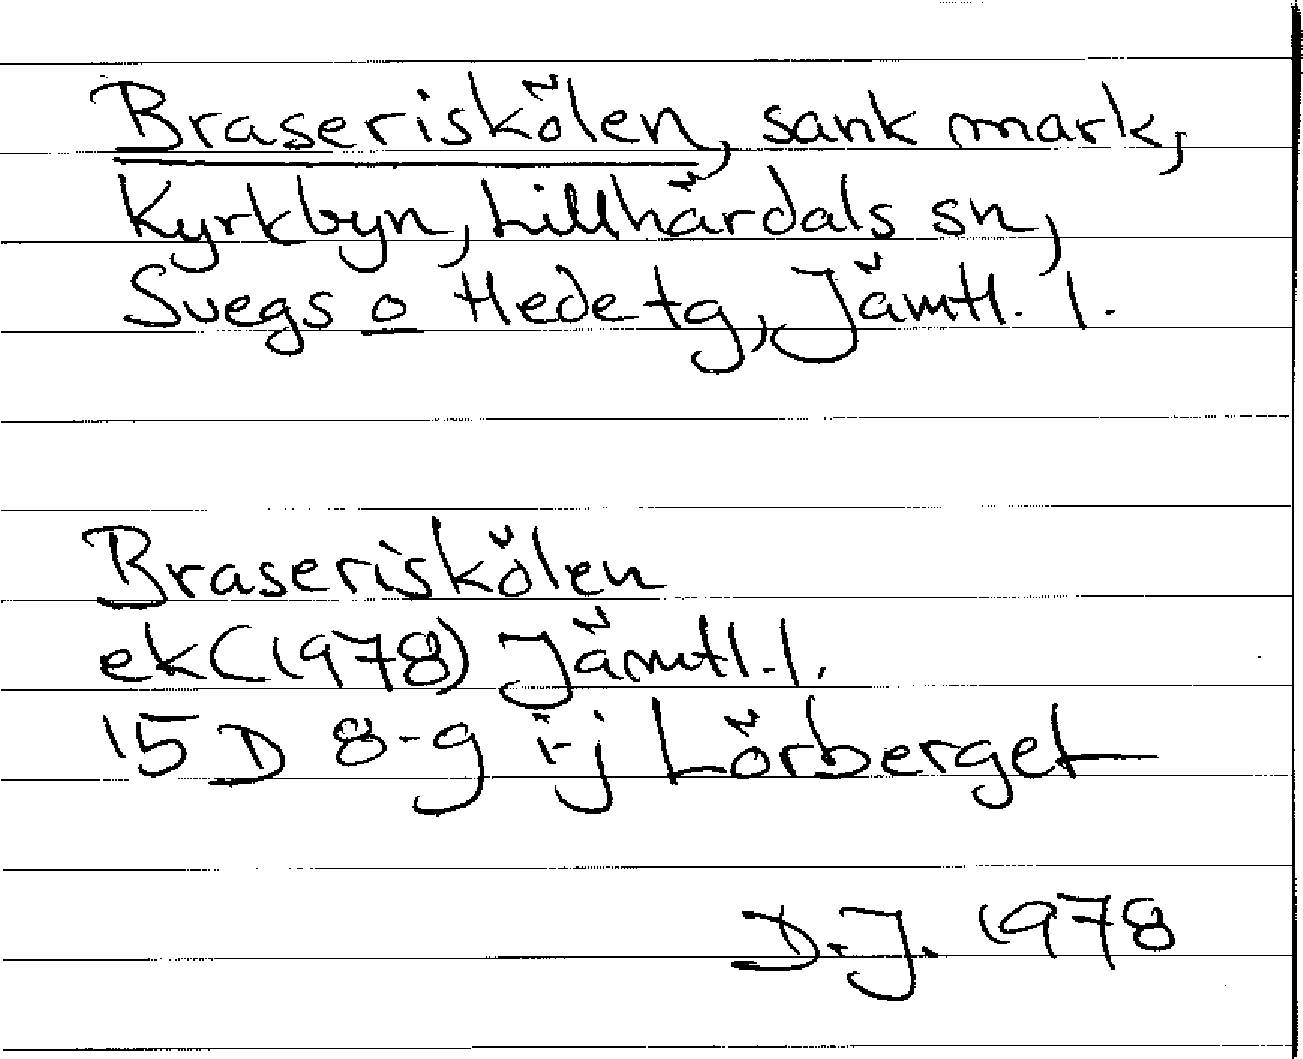 Braseriskölen, sank mark,
Kyrkbyn, Lillhärdals sn,
Svegs o Hede tg, Jämtl. l.
Braseriskölen
ek (1978) Jämtl. l.
15 D 8-9 i-j Lörberget
D.J. 1978